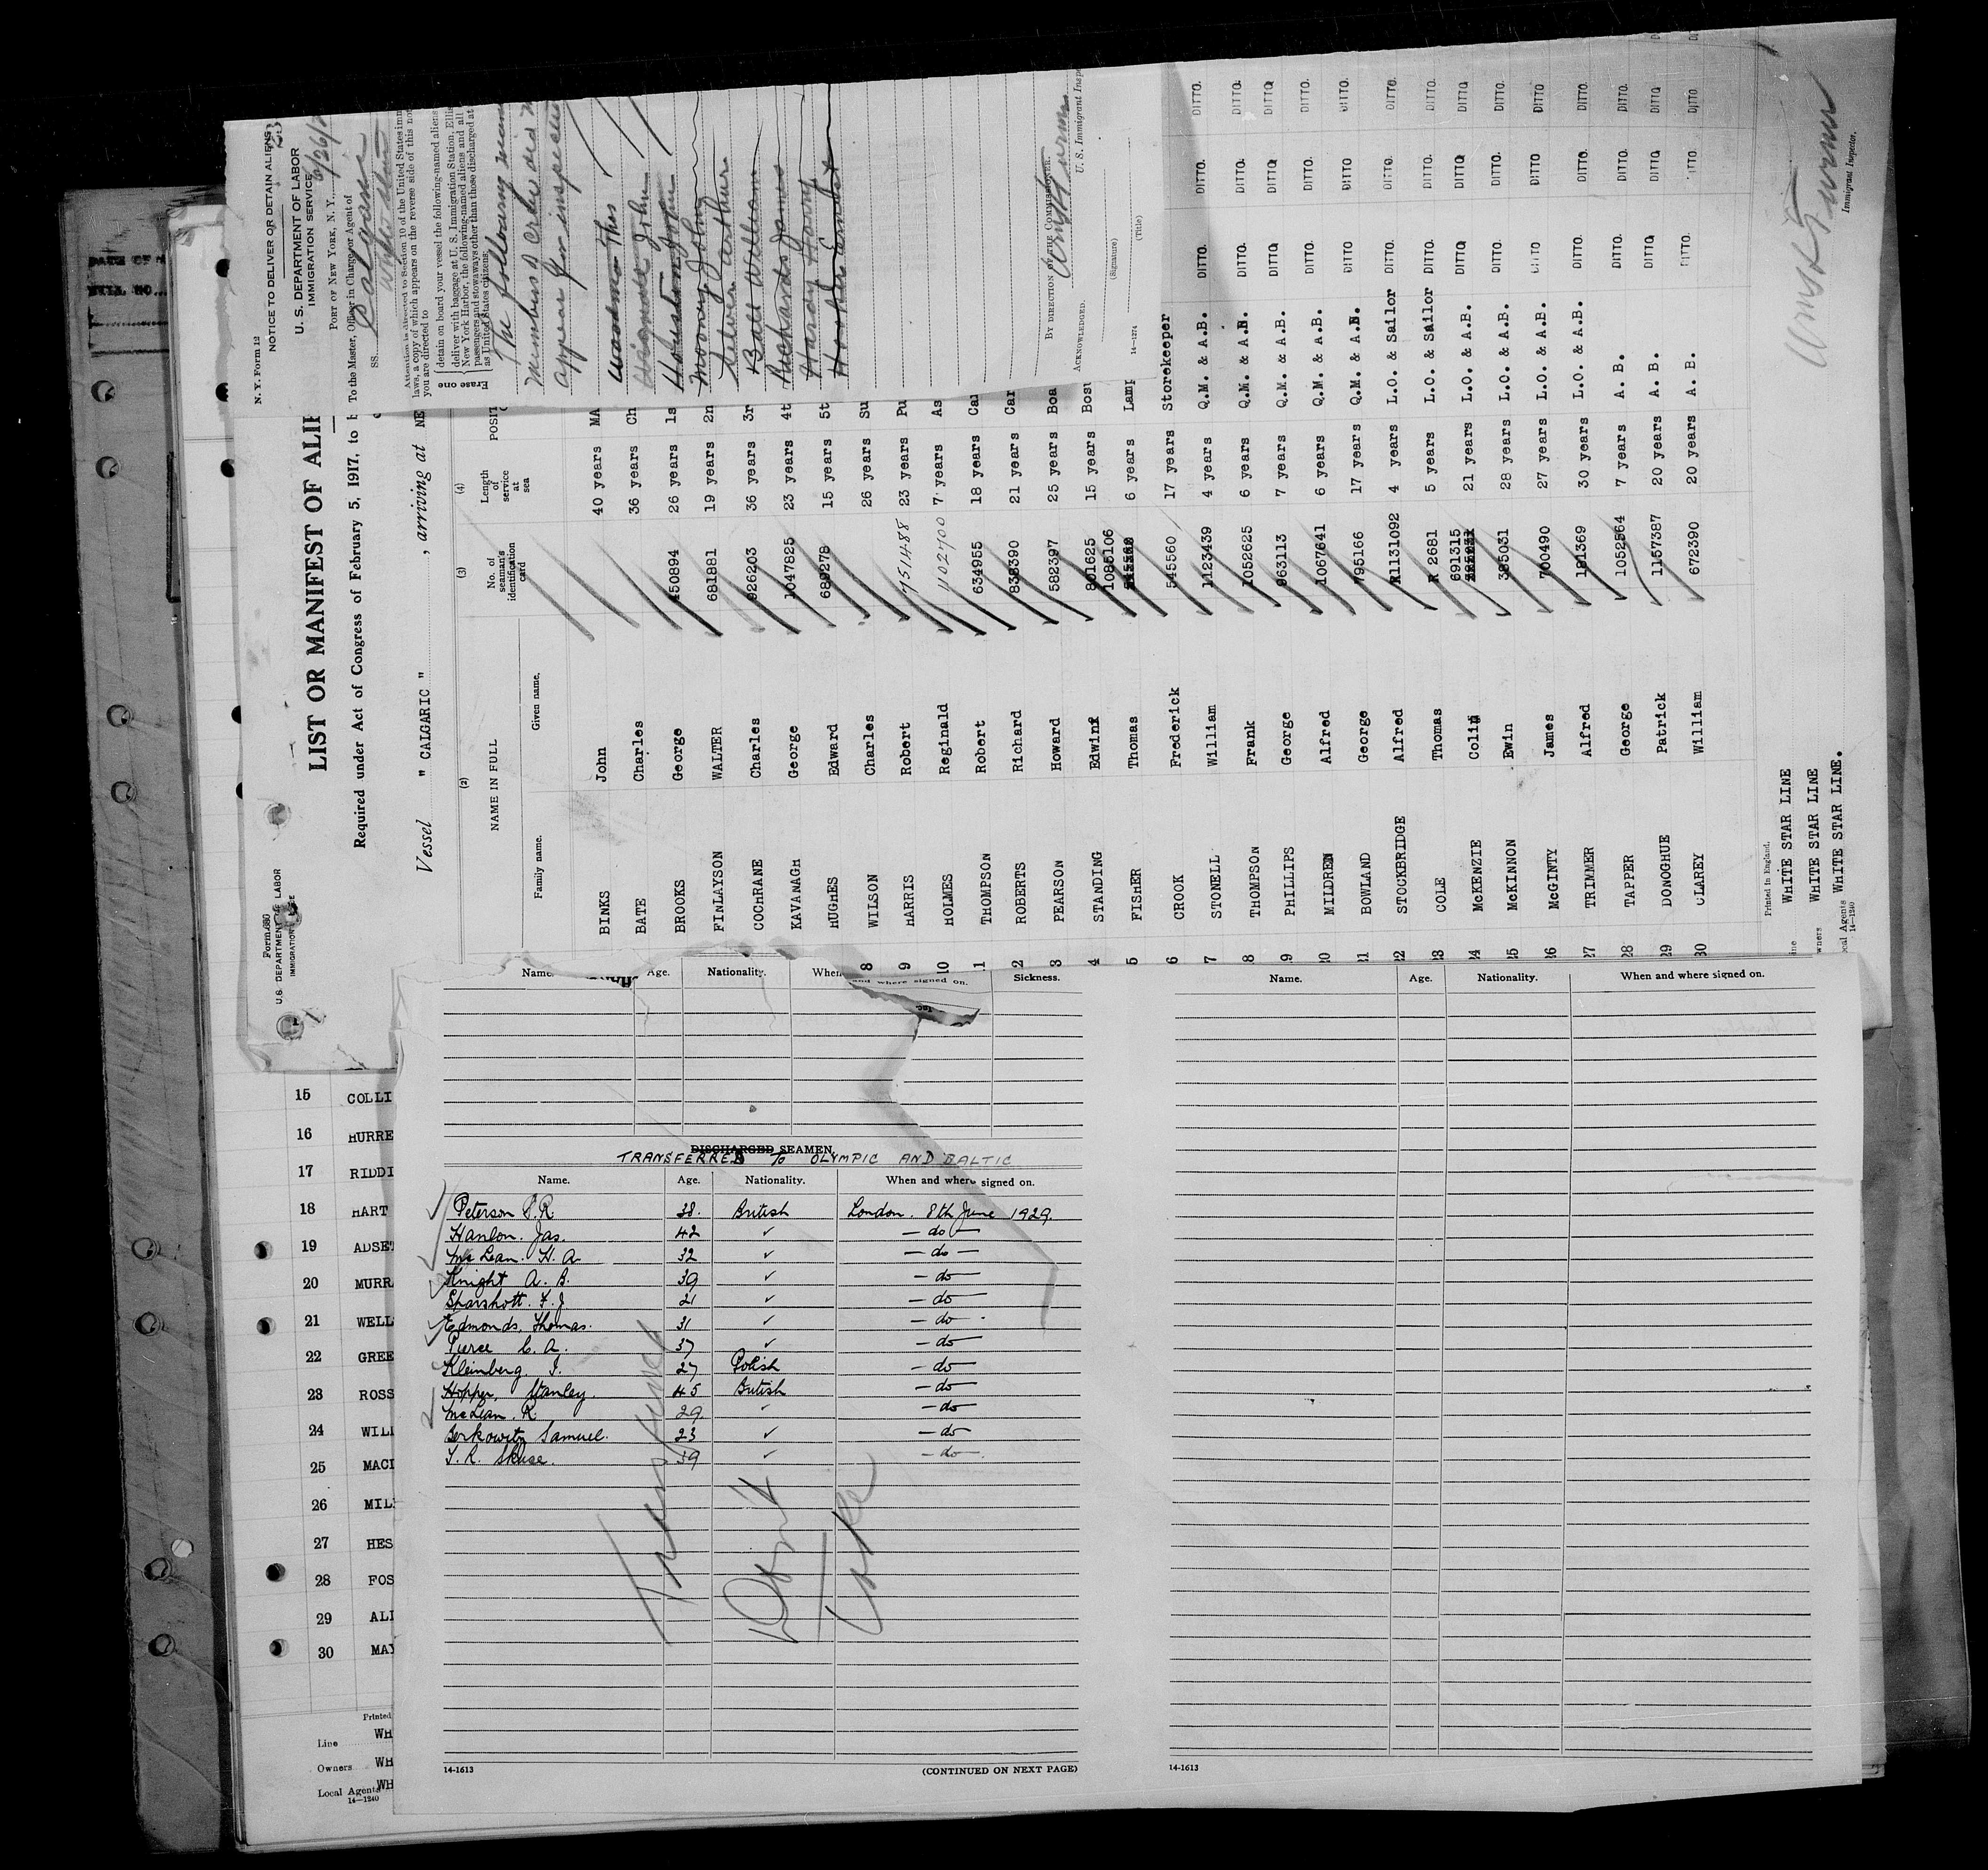 N. Y. Form 12
NOTICE TO DELIVER OR DETAIN ALIENS
U. S. DEPARTMENT OF LABOR
IMMIGRATION SERVICE
PORT OF NEW YORK, N. Y.
To the Master, Officer in Charge, or Agent of
SS. Calgaric
White Star
Attention is directed to Section 10 of the United States imm
laws, a copy of which appears on the reverse side of this not
you are directed to
detain on board your vessel the following-named aliens
deliver with baggage at U. S. Immigration Station, Ellis
New York Harbor, the following-named aliens and all
passengers and stowaways other than those discharged at
as United States citizens.
Erase one
The following
members of crew did
appear for inspection
Woodman Thos
John
Houston John
Mooney John
Arthur
Ball William
Richards James
Hardy Harry
Hooker Ernest
BY DIRECTION OF THE COMMISSIONER.
(Signature)
U. S. Immigrant Inspe
ACKNOWLEDGED.
(Title)
14-1274
Form 680
U.S. DEPARTMENT OF LABOR
LIST OR MANIFEST OF ALIE
Required under Act of Congress of February 5, 1917, to b
Vessel " CALGARIC " , arriving at NE
(2) (3) (4)
NAME IN FULL No. of seaman's identification card Length of service at sea POSIT
Family name. Given name.
BINKS John 40 years MA
BATE Charles 36 years Ch
BROOKS George 450894 26 years 1s
FINLAYSON WALTER 681881 19 years 2n
COCHRANE Charles 926203 36 years 3r
KAVANAGH George 1047825 23 years 4t
HUGHES Edward 689278 15 years 5t
8 WILSON Charles 26 years Su
9 HARRIS Robert 751488 23 years Pu
10 HOLMES Reginald 1102700 7 years As
11 THOMPSON Robert 634955 18 years Ca
12 ROBERTS Richard 838390 21 years Car
3 PEARSON Howard 582397 25 years Boa
4 STANDING Edwin 801625 15 years Bos
5 FISHER Thomas 1085106 6 years Lamp
6 CROOK Frederick 545560 17 years Storekeeper
7 STONELL William 1123439 4 years Q.M. & A.B. DITTO. DITTO. DITTO.
8 THOMPSON Frank 1052625 6 years Q.M. & A.B. DITTO. DITTO. DITTO.
9 PHILLIPS George 963113 7 years Q.M. & A.B. DITTO. DITTO DITTO
20 MILDREN Alfred 1067641 6 years Q.M. & A.B. DITTO. DITTO. DITTO.
21 BOWLAND George 795166 17 years Q.M. & A.B. DITTO DITTO DITTO
22 STOCKBRIDGE Alfred R1131092 4 years L.O. & Sailor DITTO. DITTO. DITTO.
23 COLE Thomas R 2681 5 years L.O. & Sailor DITTO. DITTO. DITTO.
24 McKENZIE Colin 691315 21 years L.O. & A.B. DITTO DITTO DITTO
25 McKINNON Ewin 385031 28 years L.O. & A.B. DITTO. DITTO. DITTO.
26 McGINTY James 700490 27 years L.O. & A.B. DITTO DITTO DITTO
27 TRIMMER Alfred 181369 30 years L.O. & A.B. DITTO. DITTO. DITTO.
28 TAPPER George 1052564 7 years A. B. DITTO. DITTO. DITTO.
29 DONOGHUE Patrick 1157387 20 years A. B. DITTO DITTO DITTO
30 CLAREY William 672390 20 years A. B. DITTO. DITTO. DITTO.
Printed in England.
WHITE STAR LINE
WHITE STAR LINE
WHITE STAR LINE.
14-1240
Immigrant Inspector.
Name. Age. Nationality. When and where signed on. Sickness.
DISCHARGED SEAMEN
TRANSFERRED TO OLYMPIC AND BALTIC
Name. Age. Nationality. When and where signed on.
Peterson P.R. 38. British London. 8th June 1929.
Hanlon. Jas. 42 ✓ — do —
McLean. H. A. 32 ✓ — do —
Knight A. B. 39 ✓ — do —
Sparshott. F. J. 21 ✓ — do —
Edmonds, Thomas. 31 ✓ — do -
Pierce C. A. 37 ✓ — do —
Kleinberg. I. 27 Polish — do —
Hopper, Stanley. 45 British — do —
McLean. R. 29. ✓ — do —
Berkowitz Samuel. 23 ✓ — do —
Skuse. ✓ — do —
Don't
take
14-1613 (CONTINUED ON NEXT PAGE)
Name. Age. Nationality. When and where signed on.
14-1613
15 COLLI
16 HURRE
17 RIDDI
18 HART
19 ADSET
20 MURR
21 WELL
22 GREE
23 ROSS
24 WILL
25 MACI
26 MIL
27 HES
28 FOS
29 ALI
30 MAY
Printed
Line WH
Owners WH
Local Agents WH
14—1240